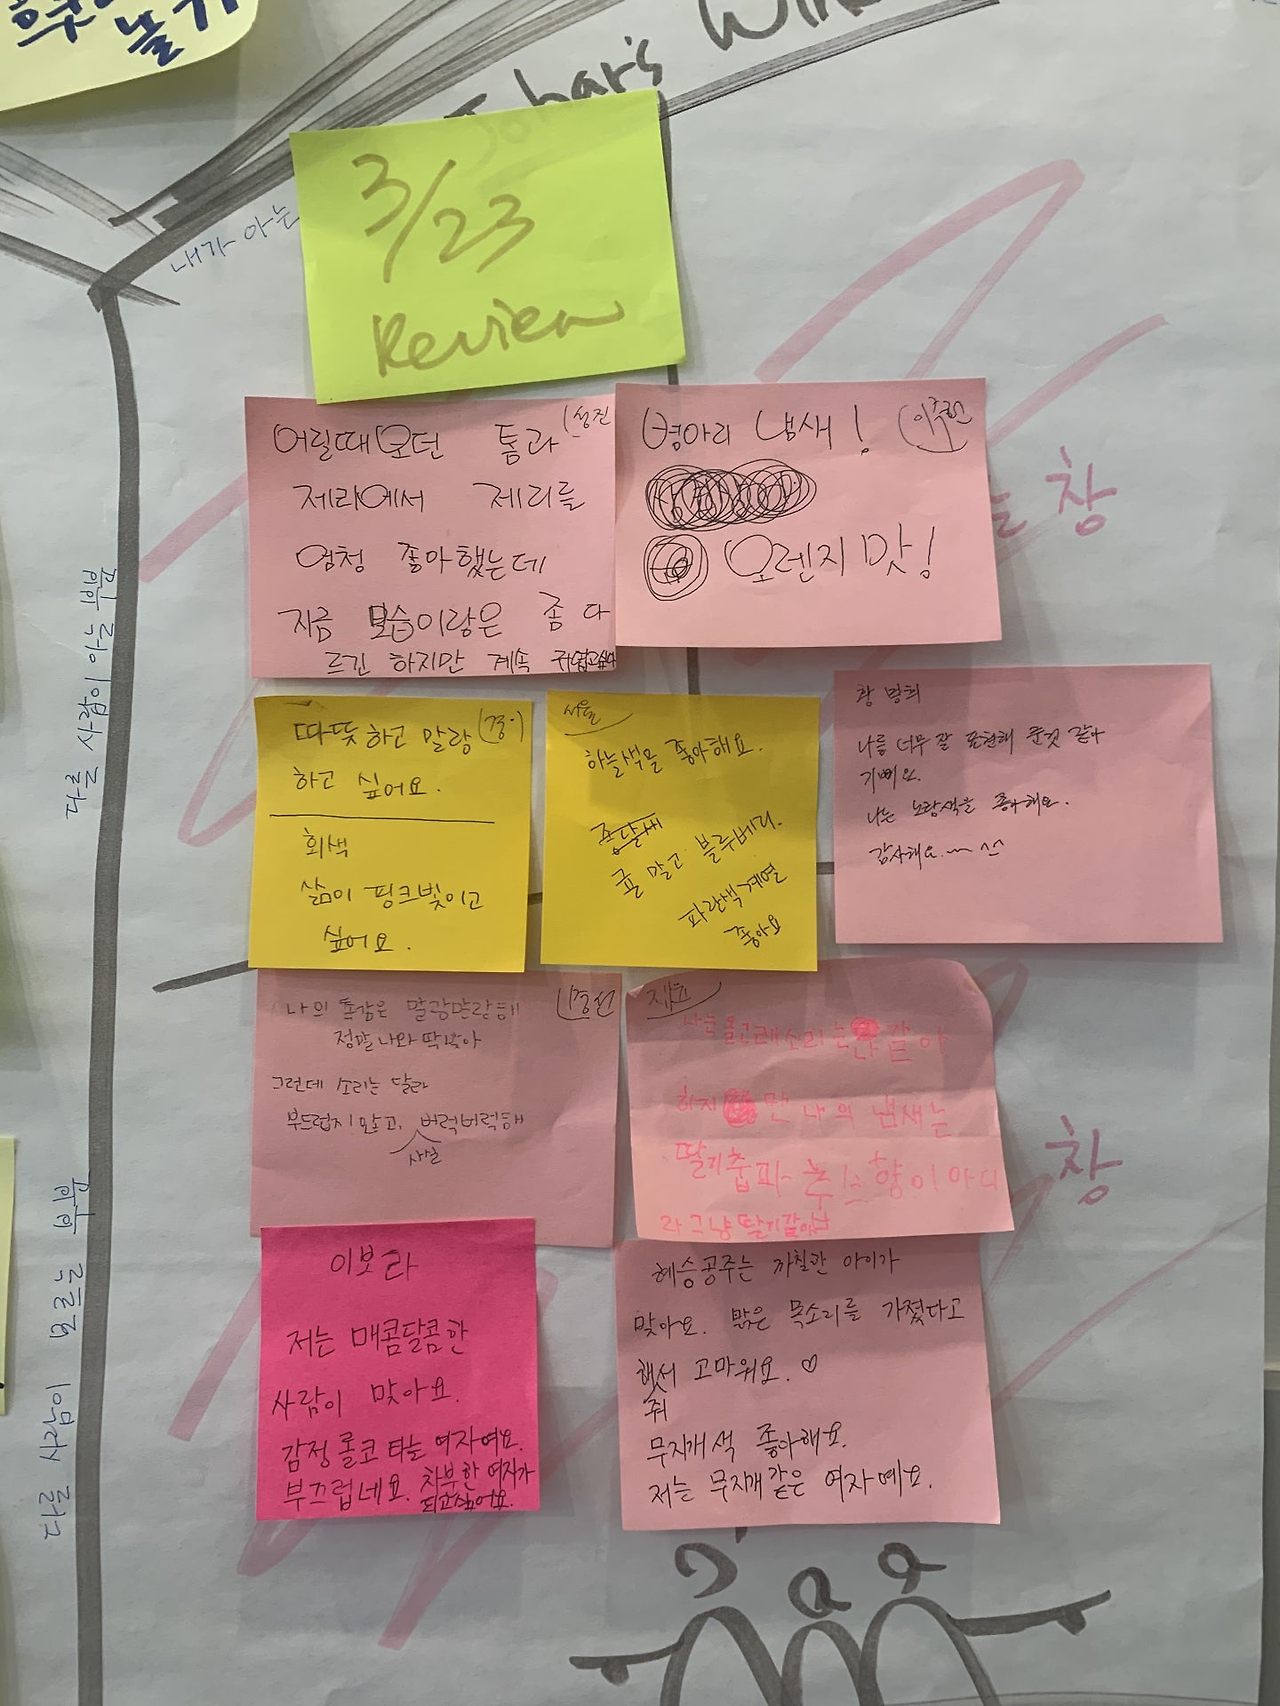 3/23
Review
내가 아는
창
창
다른 사람이
다른 사람이 모르는
어릴때 보던 톰과
제리에서 제리를
엄청 좋아했는데
지금 모습이랑은 좀 다
르긴 하지만 계속 귀엽고싶어
병아리 냄새!
오렌지 맛!
따뜻하고 말랑
하고 싶어요.
회색
삶이 핑크빛이고
싶어요.
하늘색을 좋아해요.
귤 말고 블루베리.
파란색계열
좋아요
황명희
나를 너무 잘 표현해 준것 같아
기뻐요.
나는 노랑색을 좋아해요.
감사해요.~ ^^
나의 촉감은 말랑말랑해
정말 나와 딱맞아
그런데 소리는 달라
부드럽지 않고, 사실 버럭버럭해
나는 돌고래소리는 같아
하지만 나의 냄새는
딸기츕파 주스향이 아니
라 그냥 딸기같아
이보라
저는 매콤달콤한
사람이 맞아요.
감정 롤코 타는 여자여요.
부끄럽네요. 차분한 여자가
되고싶어요.
혜승공주는 까칠한 아이가
맞아요. 맑은 목소리를 가졌다고
해줘서 고마워요. ♡
무지개색 좋아해요.
저는 무지개같은 여자예요.